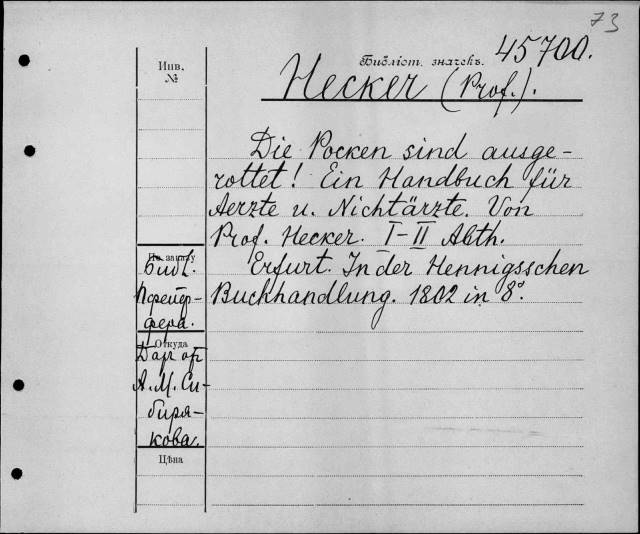 73
Библіот. значекъ. 45700.
Инв.
№
Hecker (Prof.).
Die Pocken sind ausge-
rottet! Ein Handbuch für
Aerzte u. Nichtärzte. Von
Prof. Hecker. I-II Abth.
Erfurt. In der Hennigsschen
Buchhandlung. 1802 in 8°.
По заказу
Библ.
Пфейф-
фера.
Откуда
Даръ от
А. М. Си-
биря-
кова.
Цѣна